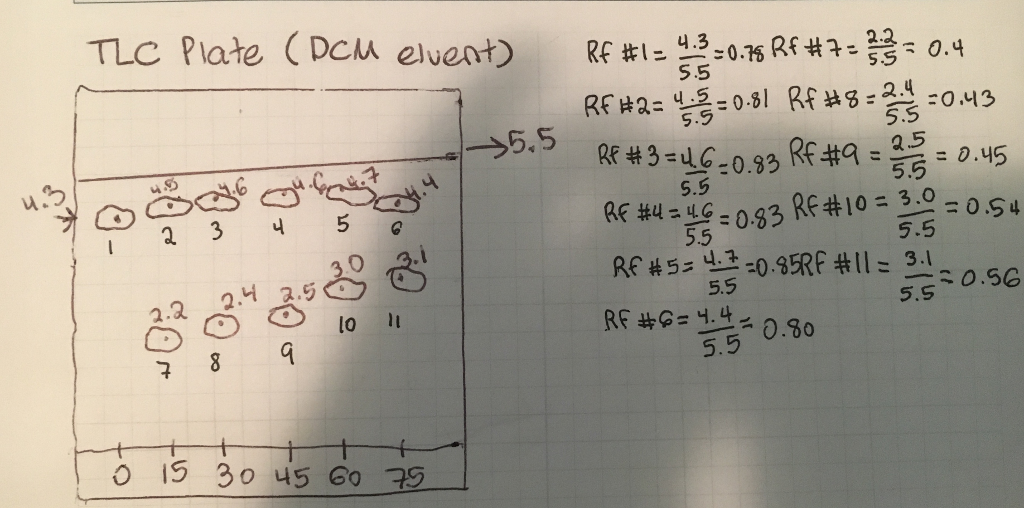 TLC Plate (DCM eluent)
→5.5
4.3
4.5 4.6 4.6 4.7 4.4
1 2 3 4 5 6
2.2 2.4 2.5 3.0 3.1
7 8 9 10 11
0 15 30 45 60 75
Rf #1 = 4.3/5.5 = 0.78 Rf #7 = 2.2/5.5 = 0.4
Rf #2 = 4.5/5.5 = 0.81 Rf #8 = 2.4/5.5 = 0.43
Rf #3 = 4.6/5.5 = 0.83 Rf #9 = 2.5/5.5 = 0.45
Rf #4 = 4.6/5.5 = 0.83 Rf #10 = 3.0/5.5 = 0.54
Rf #5 = 4.7/5.5 = 0.85 Rf #11 = 3.1/5.5 = 0.56
Rf #6 = 4.4/5.5 = 0.80